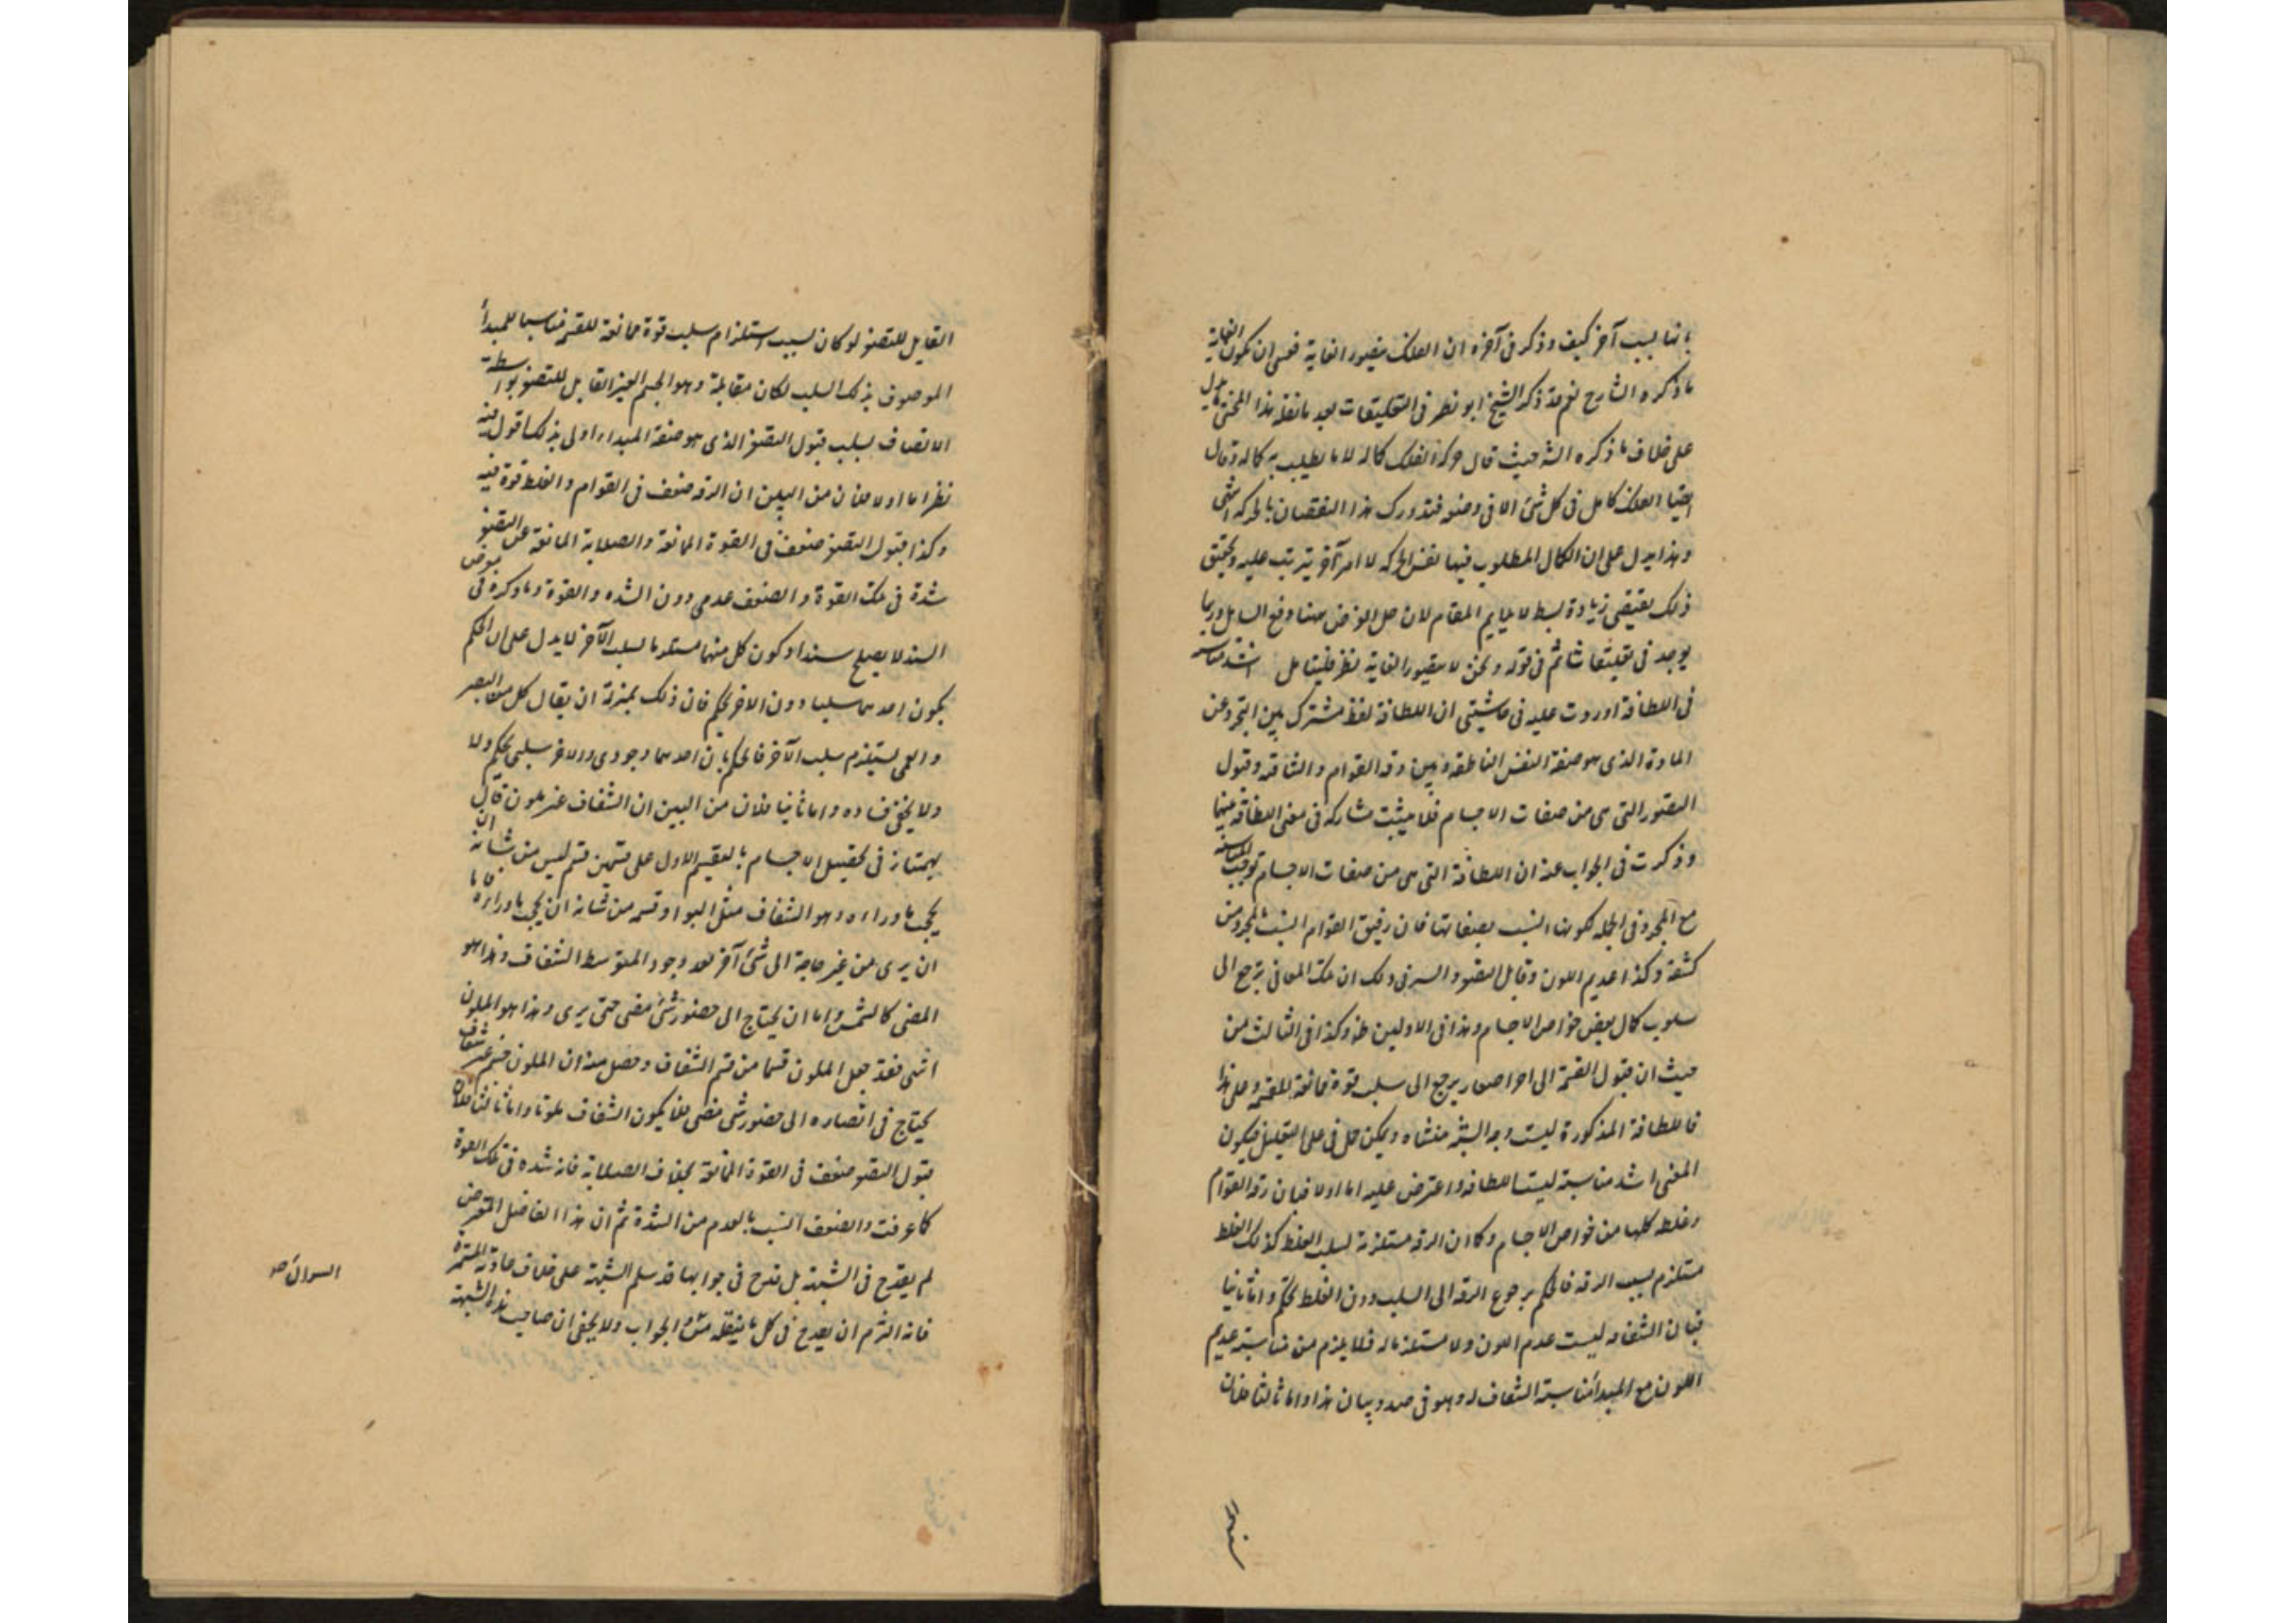 بانها لسبب آخر كيف وذكر فى آخره ان الفلك يتصور الغاية فعسى ان يكون الغاية
ما ذكره الشارح نعم قد ذكر الشيخ ابو نصر فى التعليقات بعد ما نقله هذا المحشى ما يدل
على خلاف ما ذكره الشه حيث قال حركة الفلك كماله لا ما يطلب به كماله وقال
ايضا الفلك كامل فى كل شئ الا فى وضعه فتدورك هذا النقصان بالحركة انتهى
وهذا يدل على ان الكمال المطلوب فيها نفس الحركه لا امر آخر يترتب عليه وتحقيق
ذلك يقتضى زيادة بسط لا يلايم المقام لان حل الغرض ههنا دفع السايل وربما
يوجد فى تعليقاتنا ثم فى قوله ونحن لا نتصور الغاية نظر فليتامل اشد مناسبة
فى اللطافة اوردت عليه فى حاشيتى ان اللطافة لفظ مشترك بين التجرد عن
المادة الذى هو صفة النفس الناطقه وبين رقة القوام والشافه وقبول
التصور التى هى من صفات الاجسام فلا يثبت مشاركه فى معنى اللطافة بينهما
وذكرت فى الجواب عنه ان اللطافة التى هى من صفات الاجسام توجب المناسبة
مع المجرد فى الجمله لكونها انسب بصفاتها فان رقيق القوام انسب بالمجرد من
كثيفه وكذا عديم اللون وقابل التصور والسر فى ذلك ان تلك المعانى يرجع الى
سلوب كمال بعض خواص الاجسام وهذا فى الاولين ظ وكذا فى الثالث من
حيث ان قبول القسمة الى اجزا صغار يرجع الى سلب قوة ممانعة للقسمة وعلى هذا
فاللطافة المذكورة ليست وجه الشبه منشاه ويمكن حل فى على التعليل فيكون
المعنى اشد مناسبة ليست للطافه واعترض عليه اما اولا فبان رقة القوام
وغلظه كلها من خواص الاجسام وكما ان الرقه مستلزمة لسلب الغلظ كذلك الغلظ
مستلزم لسلب الرقه فالحكم برجوع الرقه الى السلب دون الغلظ تحكم واما ثانيا
فبان الشفافه ليست عدم اللون ولا مستلزما له فلا يلزم من مناسبة عديم
اللون مع المبدأ مناسبة الشفاف له وهو فى صدد بيان هذا واما ثالثا فلان
القابل للتصغر لو كان لسبب استلزام سلب قوة ممانعة للقسمة مناسبا للمبدأ
الموصوف بذلك السلب لكان مقابلة وهو الجسم الغير القابل للتصغر بواسطة
الاتصاف بسلب قبول التصغر الذى هو صفة المبدا اولى بذلك اقول فيه
نظر اما اولا فلان من البين ان الرقه ضعف فى القوام والغلظ قوة فيه
وكذا قبول التصغر ضعف فى القوة المانعة والصلابة المانعة عن التصغر
شدة فى تلك القوة والضعف عدمى دون الشده والقوة وما ذكره فى معرض
السند لا يصلح سندا وكون كل منهما مستلزما لسلب الآخر لا يدل على ان الحكم
بكون احدهما سلبيا دون الاخر تحكم فان ذلك بمنزلة ان يقال كل من البصر
والعمى يستلزم سلب الآخر فالحكم بان احدهما وجودى والاخر سلبى تحكم ولا
ولا يخفى فساده واما ثانيا فلان من البين ان الشفاف غير ملون قال
بهمنيار فى تحصيل الاجسام بالتقسيم الاول على قسمين قسم ليس من شانه ان
يحجب ما وراءه وهو الشفاف مثل الهوا وقسم من شانه ان يحجب ما وراءه فاما
ان يرى من غير حاجة الى شئ آخر بعد وجود المتوسط الشفاف وهذا هو
المضى كالشمس واما ان يحتاج الى حضور شئ مضى حتى يرى وهذا هو الملون
انتهى فقد جعل الملون قسما من قسيم الشفاف وحصل منه ان الملون جسم غير شفاف
يحتاج فى ابصاره الى حضور شئ مضى فلا يكون الشفاف ملونا واما ثالثا فلان
قبول التصغر ضعف فى القوة المانعة بخلاف الصلابة فانه شده فى تلك القوة
كما عرفت والضعف انسب بالعدم من الشدة ثم ان هذا الفاضل المتعرض
لم يقدح فى الشبهة بل قدح فى جوابها فقد سلم الشبهة على خلاف عادته المستمرة
فانه التزم ان يقدح فى كل ما ينقله من الجواب ولا يخفى ان صاحب هذه الشبهة